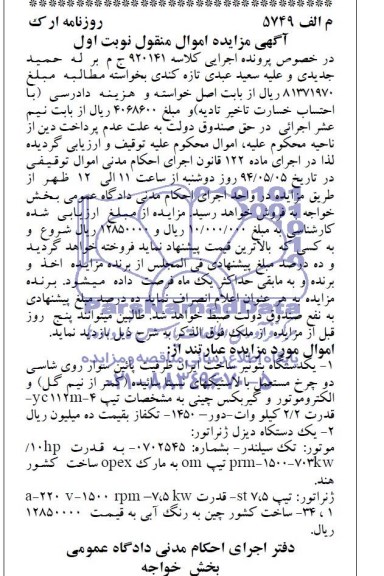 م الف ۵۷۴۹ روزنامه ارک
آگهی مزایده اموال منقول نوبت اول
در خصوص پرونده اجرایی کلاسه ۹۲۰۱۴۱ ج م بر له حمید
جدیدی و علیه سعید عبدی تازه کندی بخواسته مطالبه مبلغ
۸۱۳۷۱۹۷۰ ریال از بابت اصل خواسته و هزینه دادرسی (با
احتساب خسارت تاخیر تادیه)و مبلغ ۴۰۶۸۶۰۰ ریال از بابت نیم
عشر اجرائی در حق صندوق دولت به علت عدم پرداخت دین از
ناحیه محکوم علیه، اموال محکوم علیه توقیف و ارزیابی گردیده
لذا در اجرای ماده ۱۲۲ قانون اجرای احکام مدنی اموال توقیفی
در تاریخ ۹۴/۰۵/۰۵ روز دوشنبه از ساعت ۱۱ الی ۱۲ ظهر از
طریق مزایده در واحد اجرای احکام مدنی دادگاه عمومی بخش
خواجه به فروش خواهد رسید. مزایده از مبلغ ارزیابی شده
کارشناسی به مبلغ ۱۰/۰۰۰/۰۰۰ ریال و ۱۲۸۵۰۰۰۰ ریال شروع و
به کسی که بالاترین قیمت پیشنهاد نماید فروخته خواهد گردید
و ده درصد مبلغ پیشنهادی فی المجلس از برنده مزایده اخذ و
برنده و به مابقی حداکثر یک ماه فرصت داده میشود. برنده
مزایده به هر عنوان اعلام انصراف نماید ده درصد مبلغ پیشنهادی
به نفع صندوق دولت ضبط خواهد شد. طالبین میتوانند پنج روز
قبل از مزایده از ملک فوق الذکر به شرح ذیل بازدید نماید.
اموال مورد مزایده عبارتند از:
۱- یکدستگاه بتونیر ساخت ایران ظرفیت پاتن سوار روی شاسی
دو چرخ مستعمل با لاستیکهای
الکتروموتور و گیربکس چینی به مشخصات تیپ yc۱۱۲m-۴-
قدرت ۲/۲ کیلو وات-دور- ۱۴۵۰- تکفاز بقیمت ده میلیون ریال
۲- یک دستگاه دیزل ژنراتور:
موتور: تک سیلندر- بشماره: ۰۷۰۲۵۴۵- به قدرت ۱۰hp/
prm-۱۵۰۰-۷۰۲kw تیپ om به مارک opex ساخت کشور
هند.
ژنراتور: تیپ st ۷،۵- قدرت a-۲۲۰ v-۱۵۰۰ rpm –۷،۵ kw
۳۴،۱- ساخت کشور چین به رنگ آبی به قیمت ۱۲۸۵۰۰۰۰
ریال.
دفتر اجرای احکام مدنی دادگاه عمومی
بخش خواجه